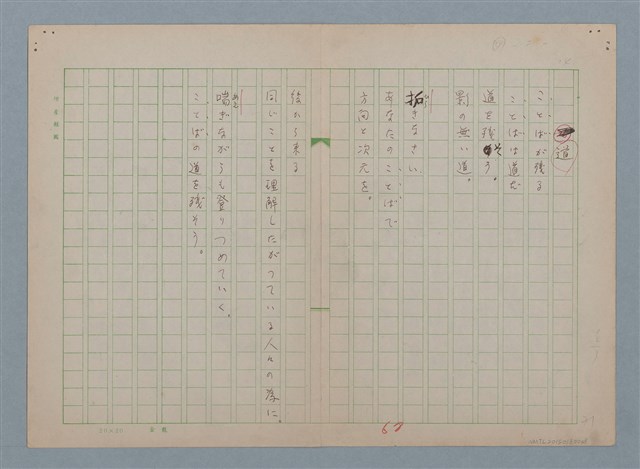 道
ことばが残る
ことばは道だ
道を残そう。
罰の無い道。
拓きなさい
あなたのことばで
方向と次元を。
後から来る
同じことを理解したがっている人々の為に。
喘ぎながらも登りつめていく。
ことばの道を残そう。
67